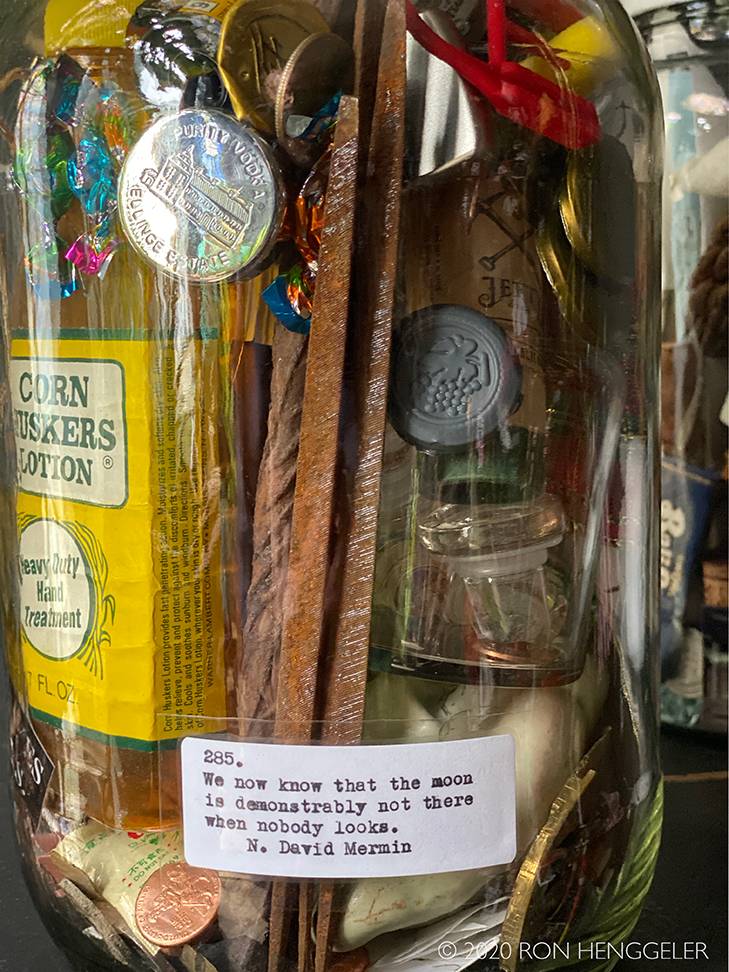 PURITY VODKA
ELLINGE ESTATE
CORN
HUSKERS
LOTION®
Heavy Duty
Hand
Treatment
7 FL. OZ.
Corn Huskers Lotion provides fast penetrating action. Moisturizes and softens
helps relieve, prevent and protect against the discomforts of irritated, chapped or cracked
skin. Cools and soothes sunburn and windburn. Directions:
of Corn Huskers Lotion, wherever your skin is dry or rough
WARNER-LAMBERT COMPANY
285.
We now know that the moon
is demonstrably not there
when nobody looks.
N. David Mermin
© 2020 RON HENGGELER